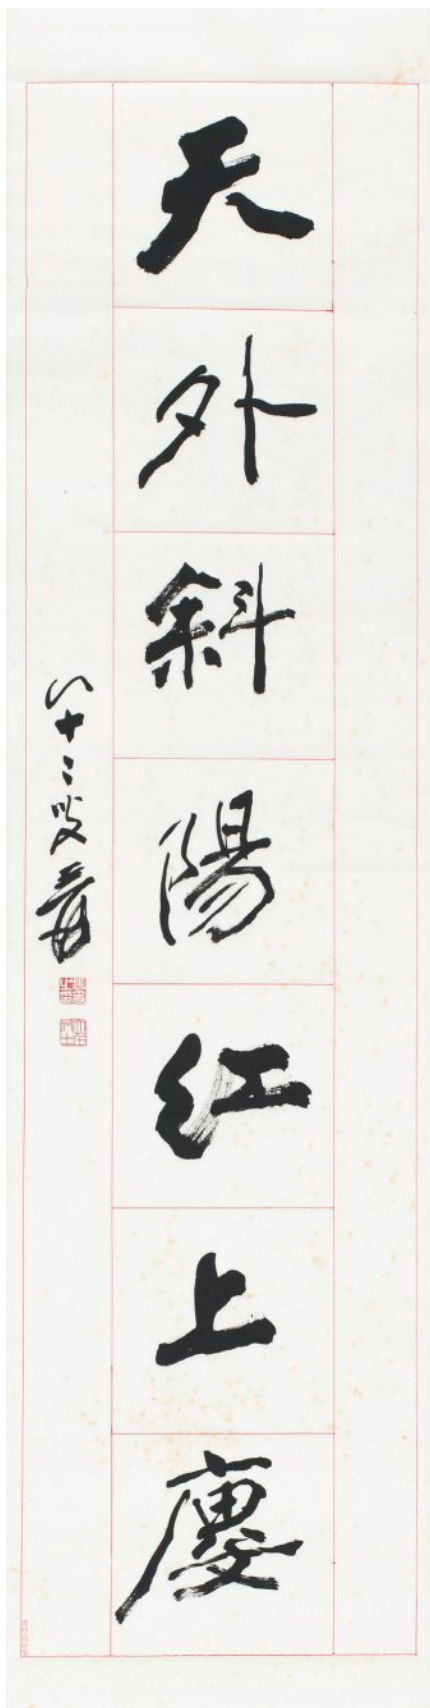 天外斜陽紅上廔
八十二叟爰